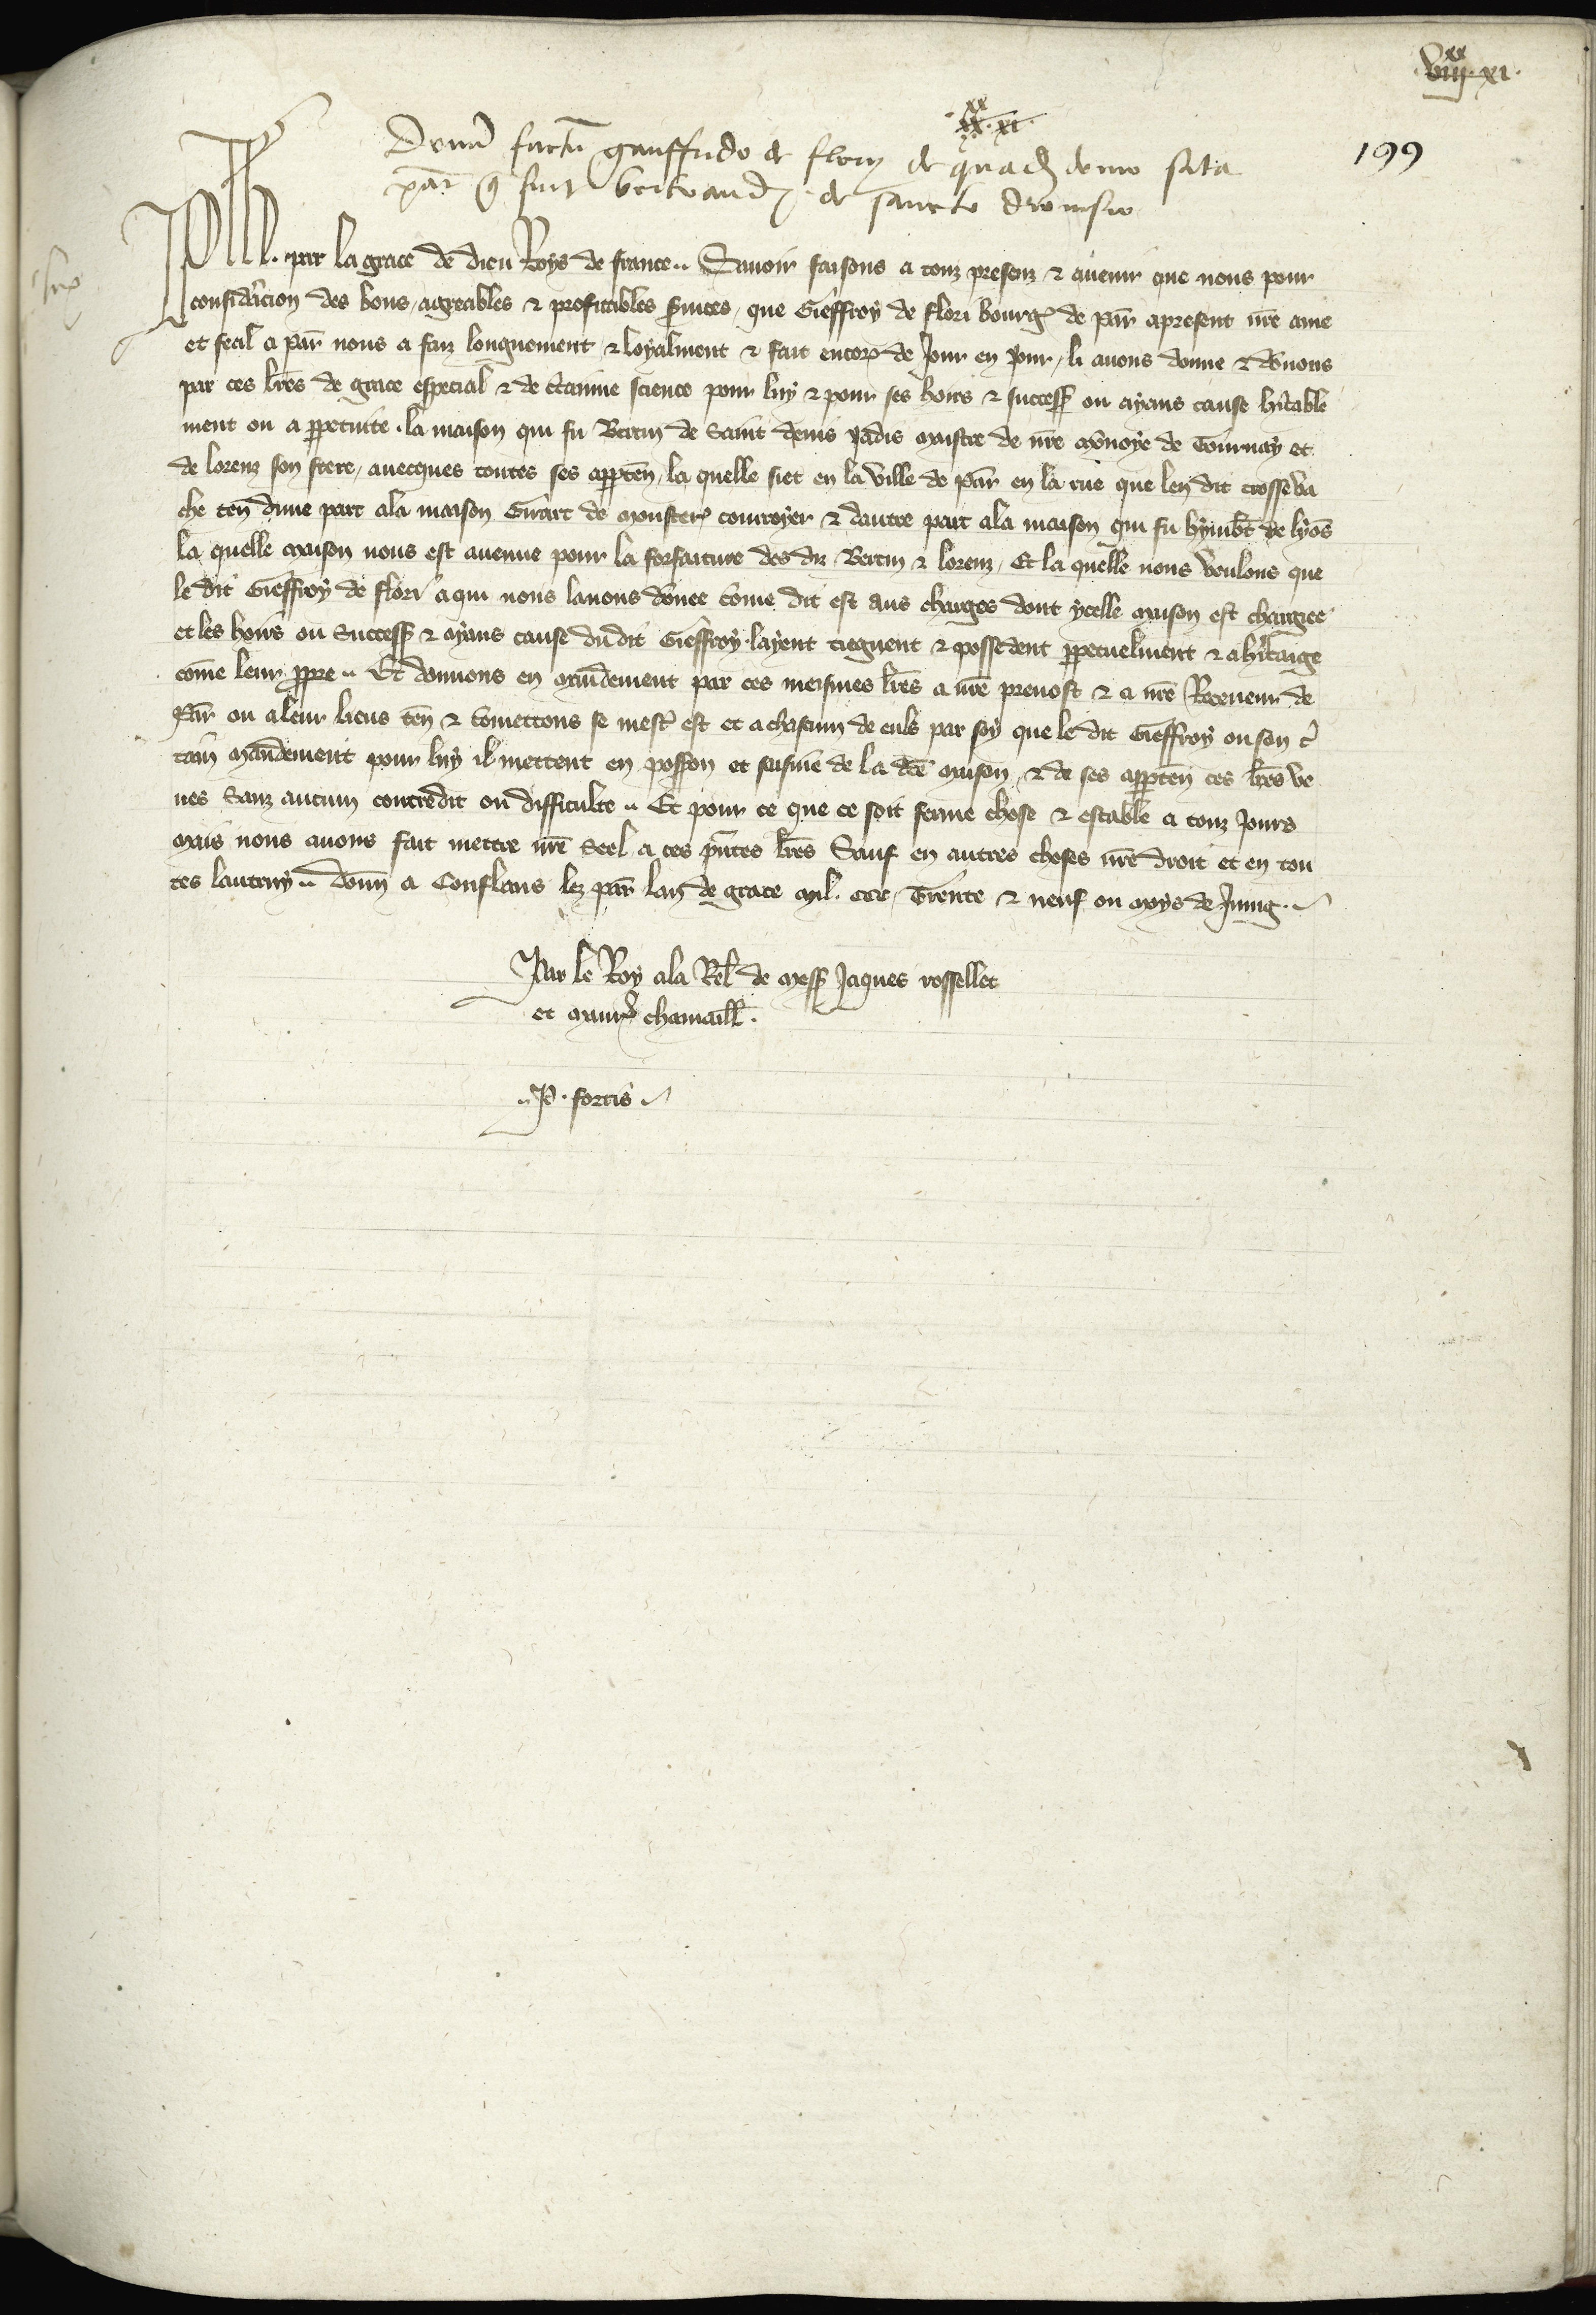 .viii.xx xi.
.xx.xx xi.
199
Donũ factũ gauffrido de flory de quad̃ domo sita
par̃ q̃ fuit bertrandi de sancto dionisio
Ph̃. par la grace de dieu Roys de france .. Sauoir faisons a touz presenz ⁊ auenir que nous pour
considãcion des bons, agreables ⁊ profitables s̃uices, que Gieffroy de flori bourg̃ de par̃ apresent nr̃e ame
et feal a par̃ nous a faiz longuement ⁊ loyalment ⁊ fait encor̃ de Jour en Jour, li auons donne ⁊ dõnons
par ces lr̃es de grace especial ⁊ de c̃tainne science pour luy ⁊ pour ses hoirs ⁊ success̃ ou ayans cause hĩtable
ment ou a ꝑpetuite. la maison qui fu Bertin de Saint denis Jadis maistre de nr̃e mõnoye de Tournay et
de lorenz son frere, auecques toutes ses apꝑteñ, la quelle siet en la ville de par̃ en la rue que len dit trosseva
che teñ dune part ala maison Girart de monster̃ courroyer ⁊ dautre part ala maison qui fu hymb̃t de lyõs
la quelle maison nous est auenue pour la forfaiture des diz Bertin ⁊ lorenz, Et la quelle nous voulons que
le dit Gieffroy de flori a qui nous lauons dõnee cõme dit est aus charges dont ycelle maison est chargee
et les hoirs ou Success̃ ⁊ ayans cause du dit Gieffroy. layent tiegnent ⁊ possedent ꝑpetuelment ⁊ a hĩtaige
cõme leur ꝓpre .. Et donnons en mãdement par ces meismes lr̃es a nr̃e preuost ⁊ a nr̃e Receueur de
Par̃ ou a leur lieus teñ ⁊ cõmettons se mest̃ est et a chascun de euls par soy que le dit Gieffroy ou son c̃
tain mãdement pour luy il mettent en possoñ et saisine de la dc̃e maison, ⁊ de ses apꝑteñ ces lr̃es ve
ues Sanz aucun contredit ou difficulte .. Et pour ce que ce soit ferme chose ⁊ estable a touz Jours
mais nous auons fait mettre nr̃e Seel a ces p̃ntes lr̃es Sauf en autres choses nr̃e droit et en tou
tes lautruy .. Donñ a Conflans lez par̃ lan de grace mil. ccc. Trente ⁊ neuf ou moys de Juing ..
Par le Roy ala Rel̃ de mess̃ Jaques rossellet
et maur̃ chamaill̃.
.. P. fortis ..